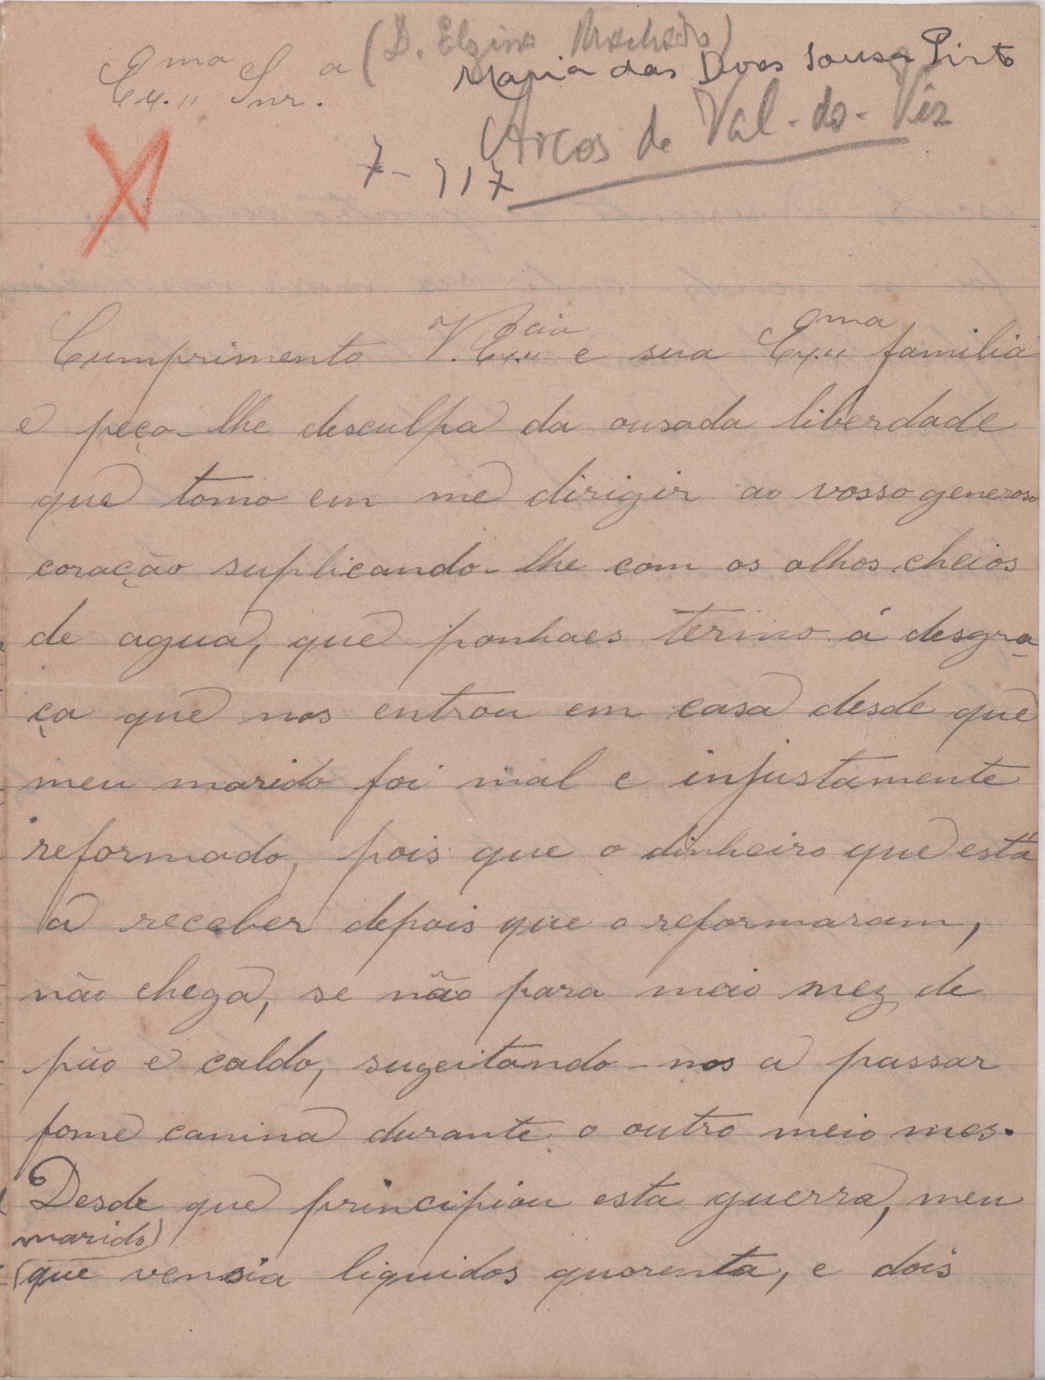 (D. Elzira Machado)
Exma Snr.a
Maria das Dores Sousa Pinto
Arcos de Val-do-Vêz
7-917
Cumprimento V. Excia e sua Exma familia
e peço-lhe desculpa da ousada liberdade
que tomo em me dirigir ao vosso generoso
coração suplicando-lhe com os olhos cheios
de agua, que ponhaes termo á desgra-
ça que nos entrou em casa desde que
meu marido foi mal e injustamente
reformado, pois que o dinheiro que está
a receber depois que o reformaram,
não chega, se não para meio mez de
pão e caldo, sugeitando-nos a passar
fome canina durante o outro meio mes.
Desde que principiou esta guerra, meu
marido
que vencia liquidos quorenta, e dois